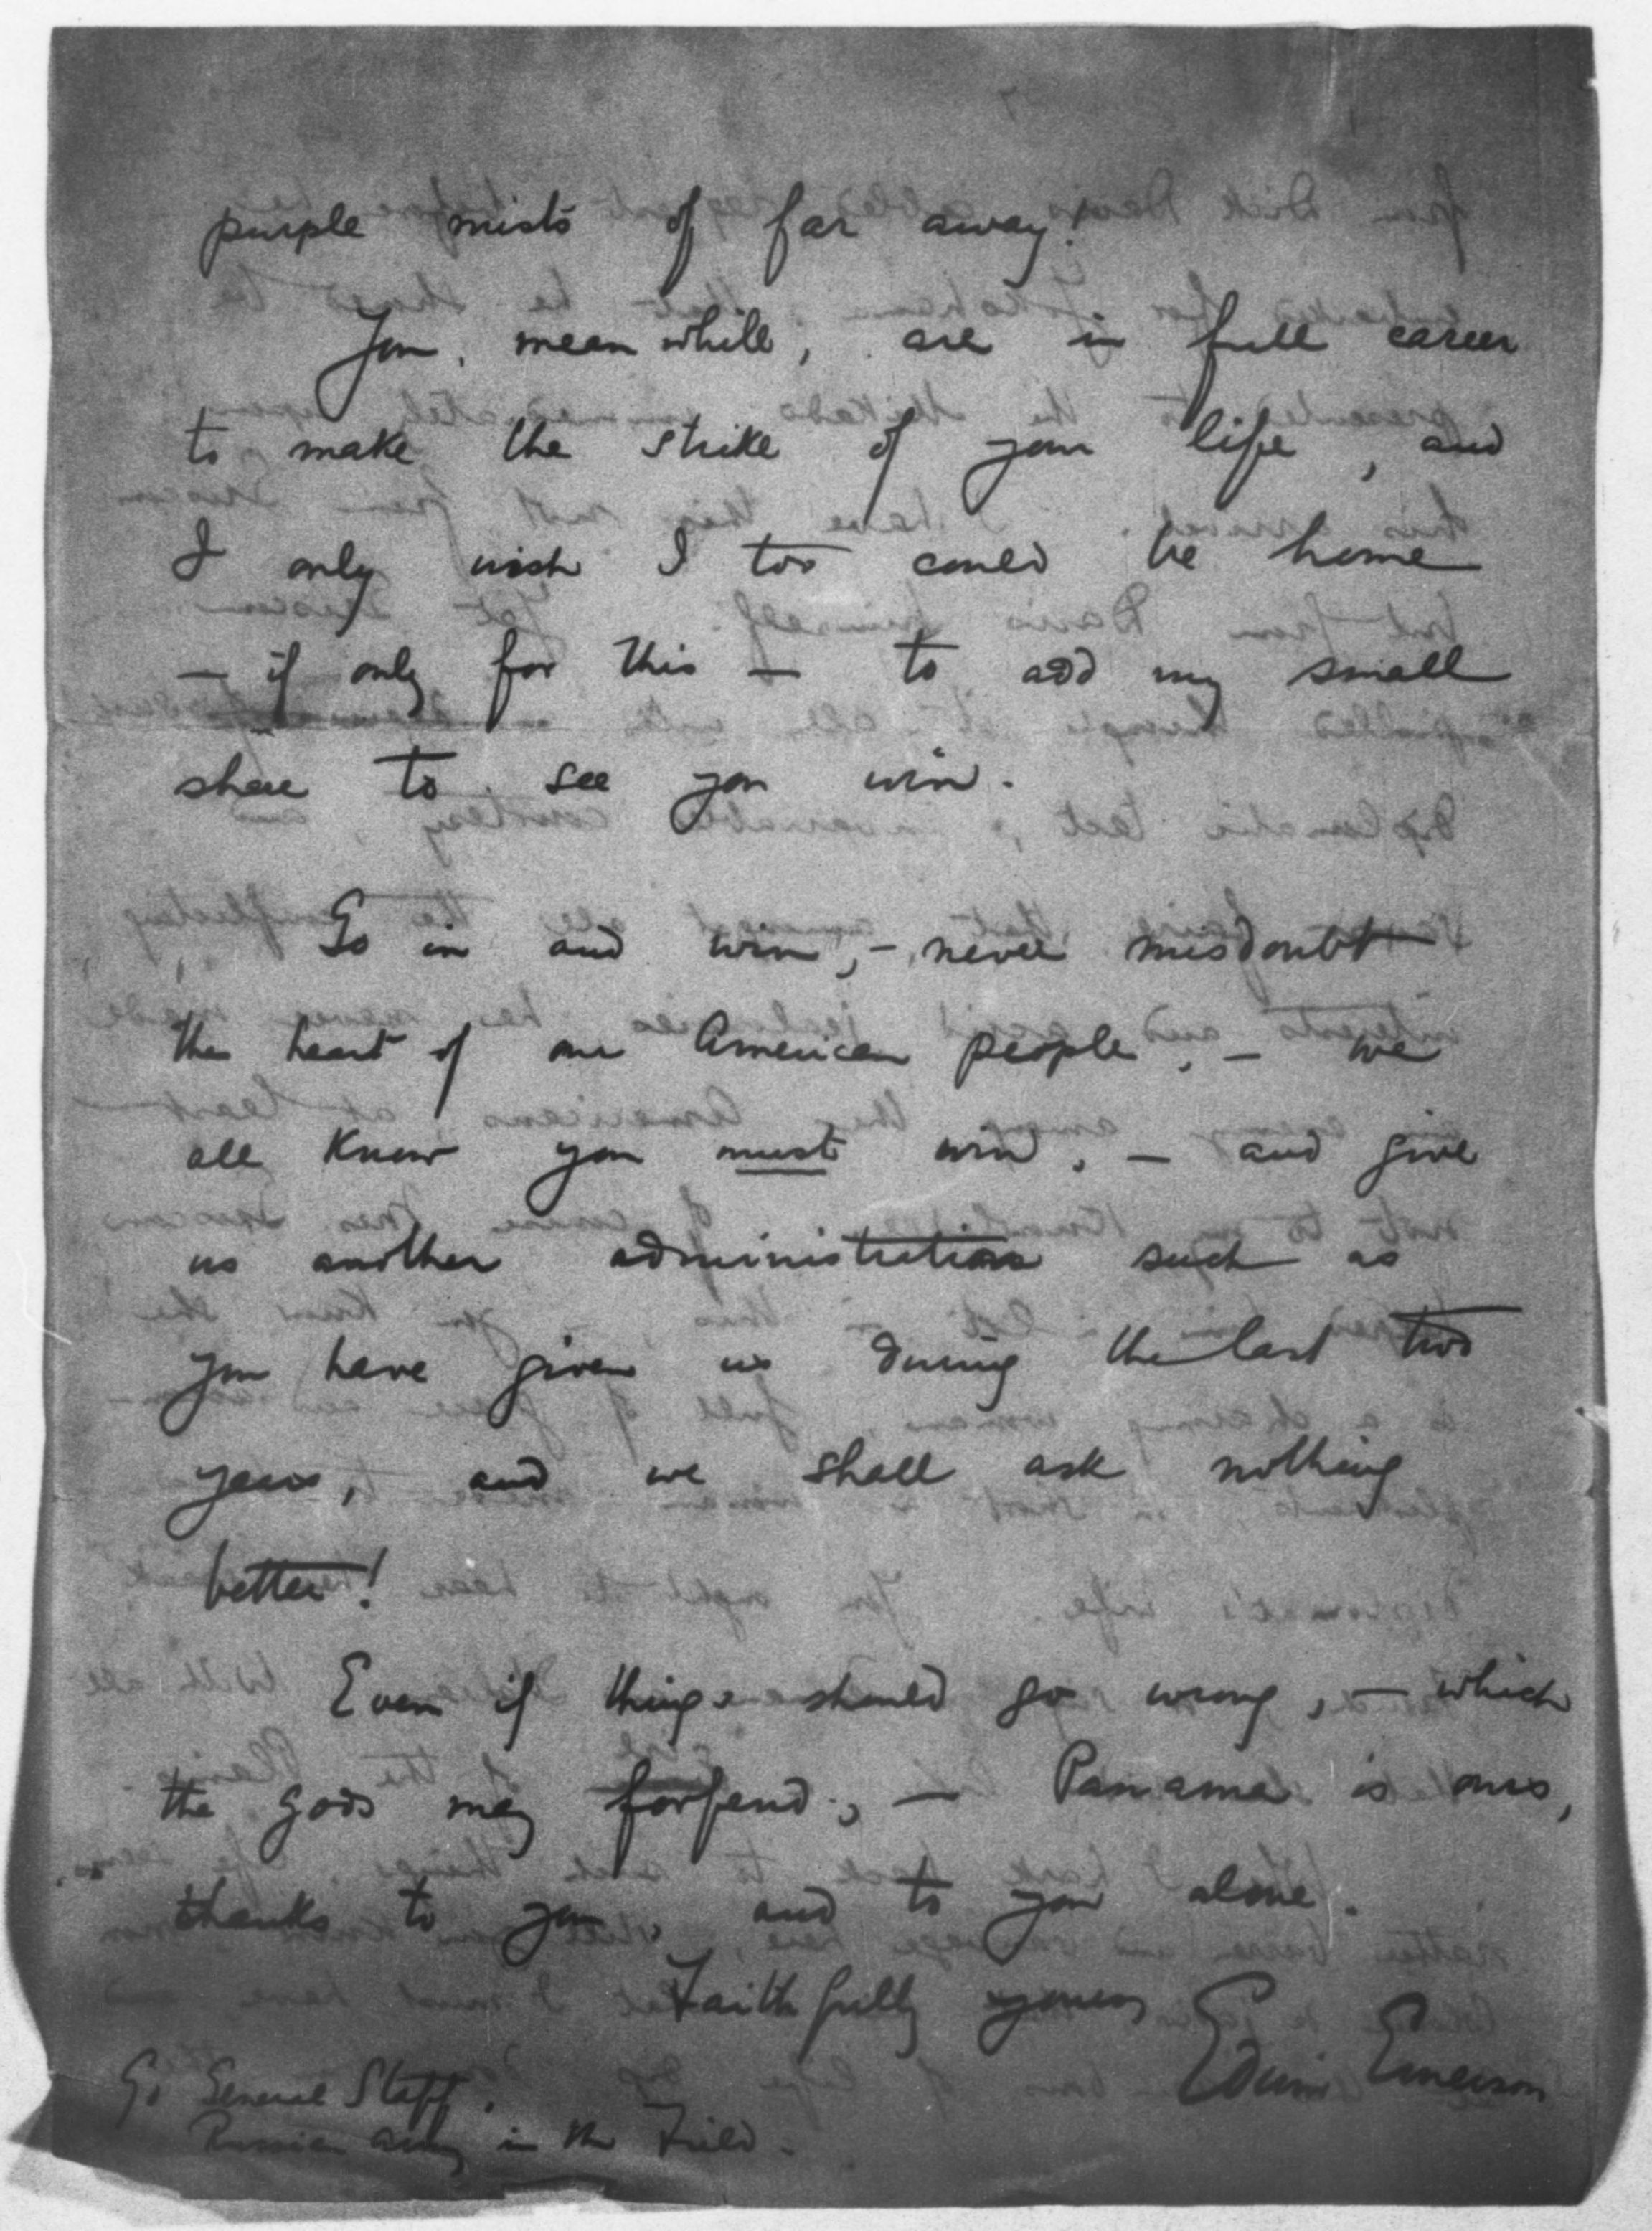 purple mists of far away!
You, meanwhile, are in full career
to make the strike of your life, and
I only wish I too could be home
— if only for this — to add my small
share to see you win.
Go in and win, – never misdoubt
the heart of our American people, – we
all know you must win, – and give
us another administration such as
you have given us during the last two
years, and we shall ask nothing
better!
Even if things should go wrong, – which
the gods may forfend, – Panama is ours,
thanks to you, and to you alone.
Faithfully yours
Edwin Emerson
General Staff,
Russian Army in the Field.